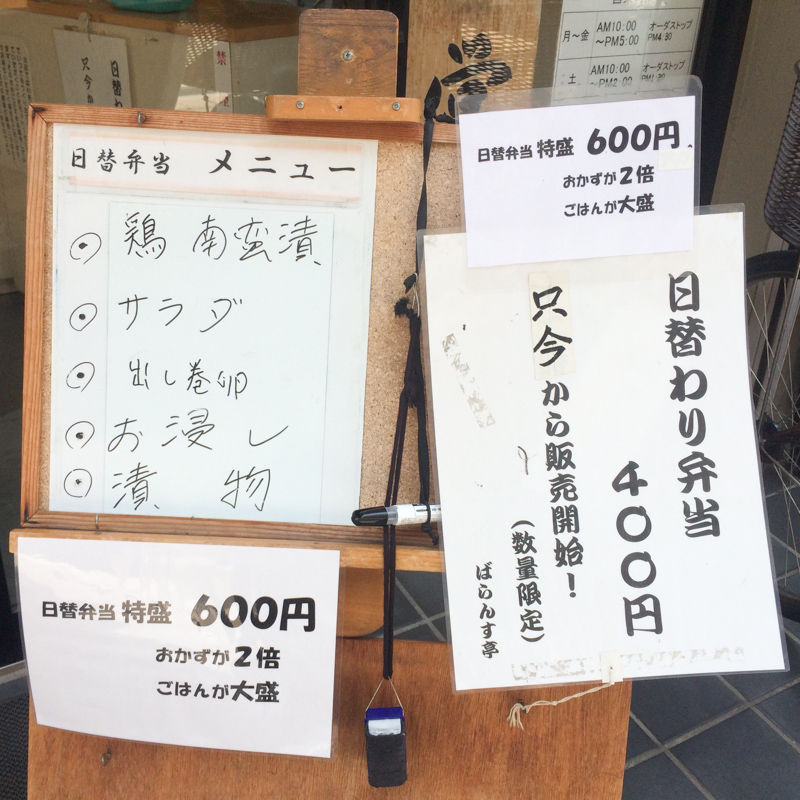 日替弁当 メニュー
鶏南蛮漬
サラダ
出し巻卵
お浸し
漬物
日替弁当 特盛 600円
おかずが2倍
ごはんが大盛
日替弁当 特盛 600円
おかずが2倍
ごはんが大盛
日替わり弁当
400円
只今から販売開始!
(数量限定)
ばらんす亭
月〜金 AM10:00 〜PM5:00 オーダストップ PM4:30
土 AM10:00 オーダストップ
日替わり
只今
禁